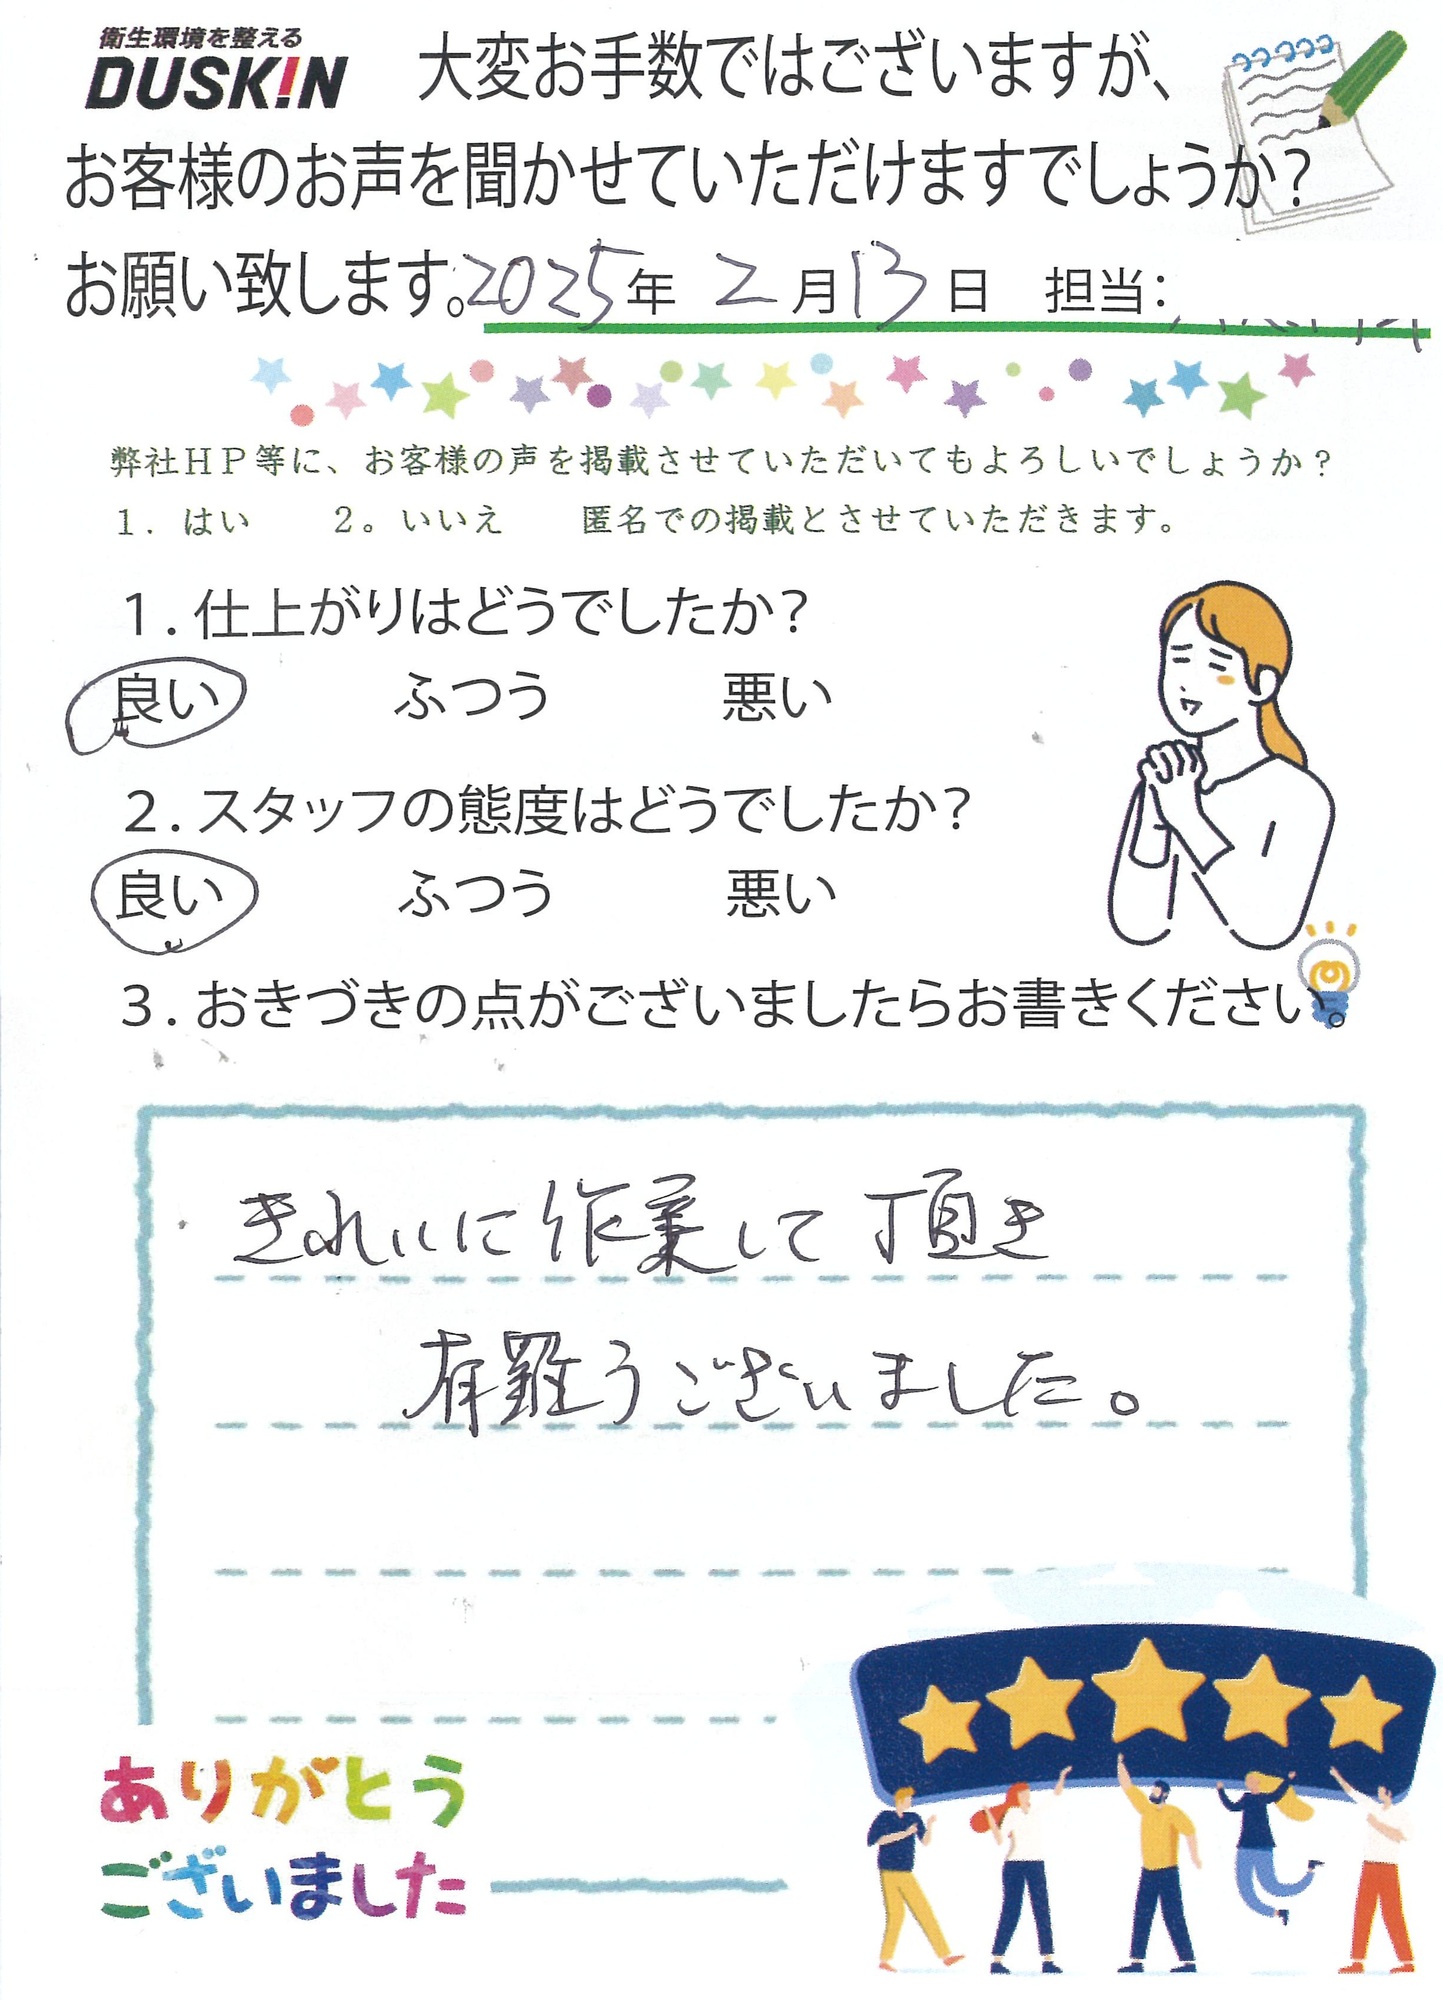 衛生環境を整える
DUSKIN
大変お手数ではございますが、
お客様のお声を聞かせていただけますでしょうか？
お願い致します。2025年 2月13日 担当：
弊社ＨＰ等に、お客様の声を掲載させていただいてもよろしいでしょうか？
１．はい ２。いいえ 匿名での掲載とさせていただきます。
１．仕上がりはどうでしたか？
良い ふつう 悪い
２．スタッフの態度はどうでしたか？
良い ふつう 悪い
３．おきづきの点がございましたらお書きください。
きれいに作業して頂き
有難うございました。
ありがとう
ございました